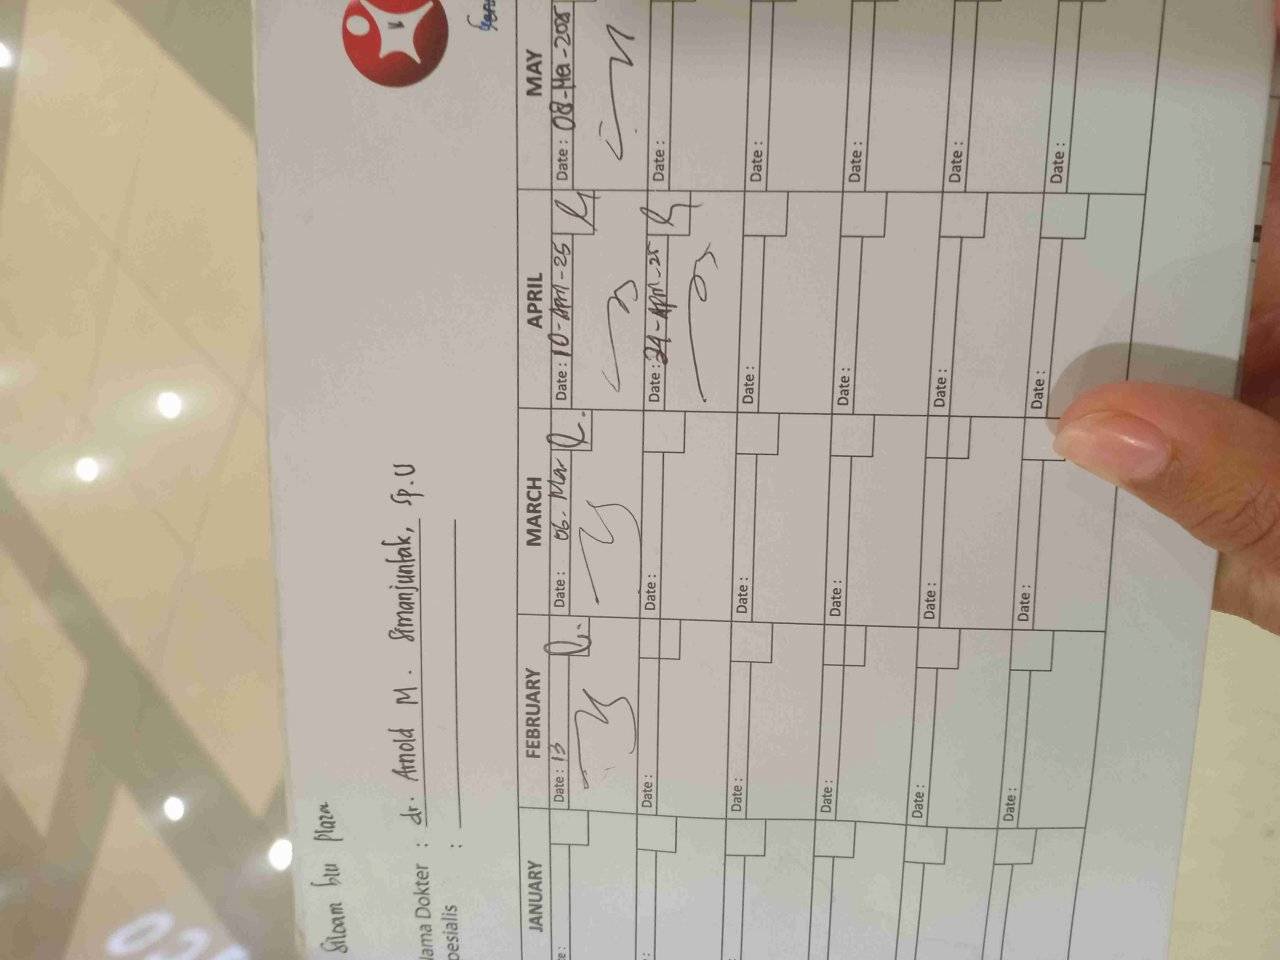 Siloam blu plaza
Nama Dokter : dr. Arnold M. Simanjuntak, Sp.U
Spesialis :
JANUARY FEBRUARY MARCH APRIL MAY
Date : 13 Date : 06. Mar Date : 10-April-25 Date : 08-Mei-2025
Date : Date : Date : 24-April-25 Date :
Date : Date : Date : Date :
Date : Date : Date : Date :
Date : Date : Date : Date :
Date : Date : Date : Date :